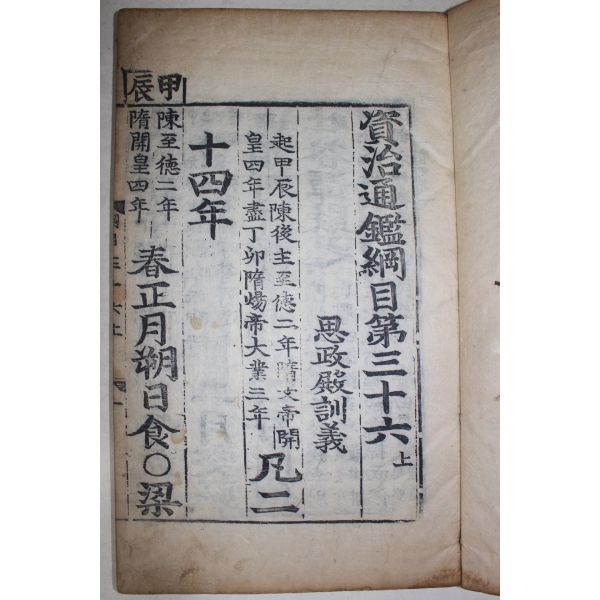 資治通鑑綱目第三十六上
思政殿訓義
起甲辰陳後主至德二年隋文帝開
皇四年盡丁卯隋煬帝大業三年
凡二
十四年
甲辰
陳至德二年
隋開皇四年
春正月朔日食○梁